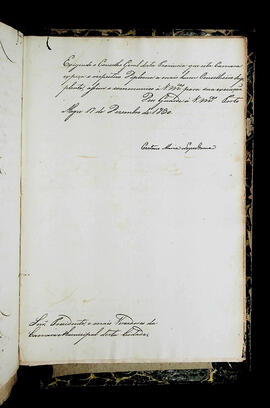 Exigindo o Conselho Geral desta Provincia que esta Camara
expeça o respectivo Diploma a mais hum Conselheiro Sup
plente, assim o communico a V. Mces para sua execução
Deos Guarde a V. Mces Porto
Alegre 17 de Dezembro de 1830.
Caetano Maria Lopes Gama
Snrs Presidente, e mais Vereadores da
Camara Municipal desta Cidade.